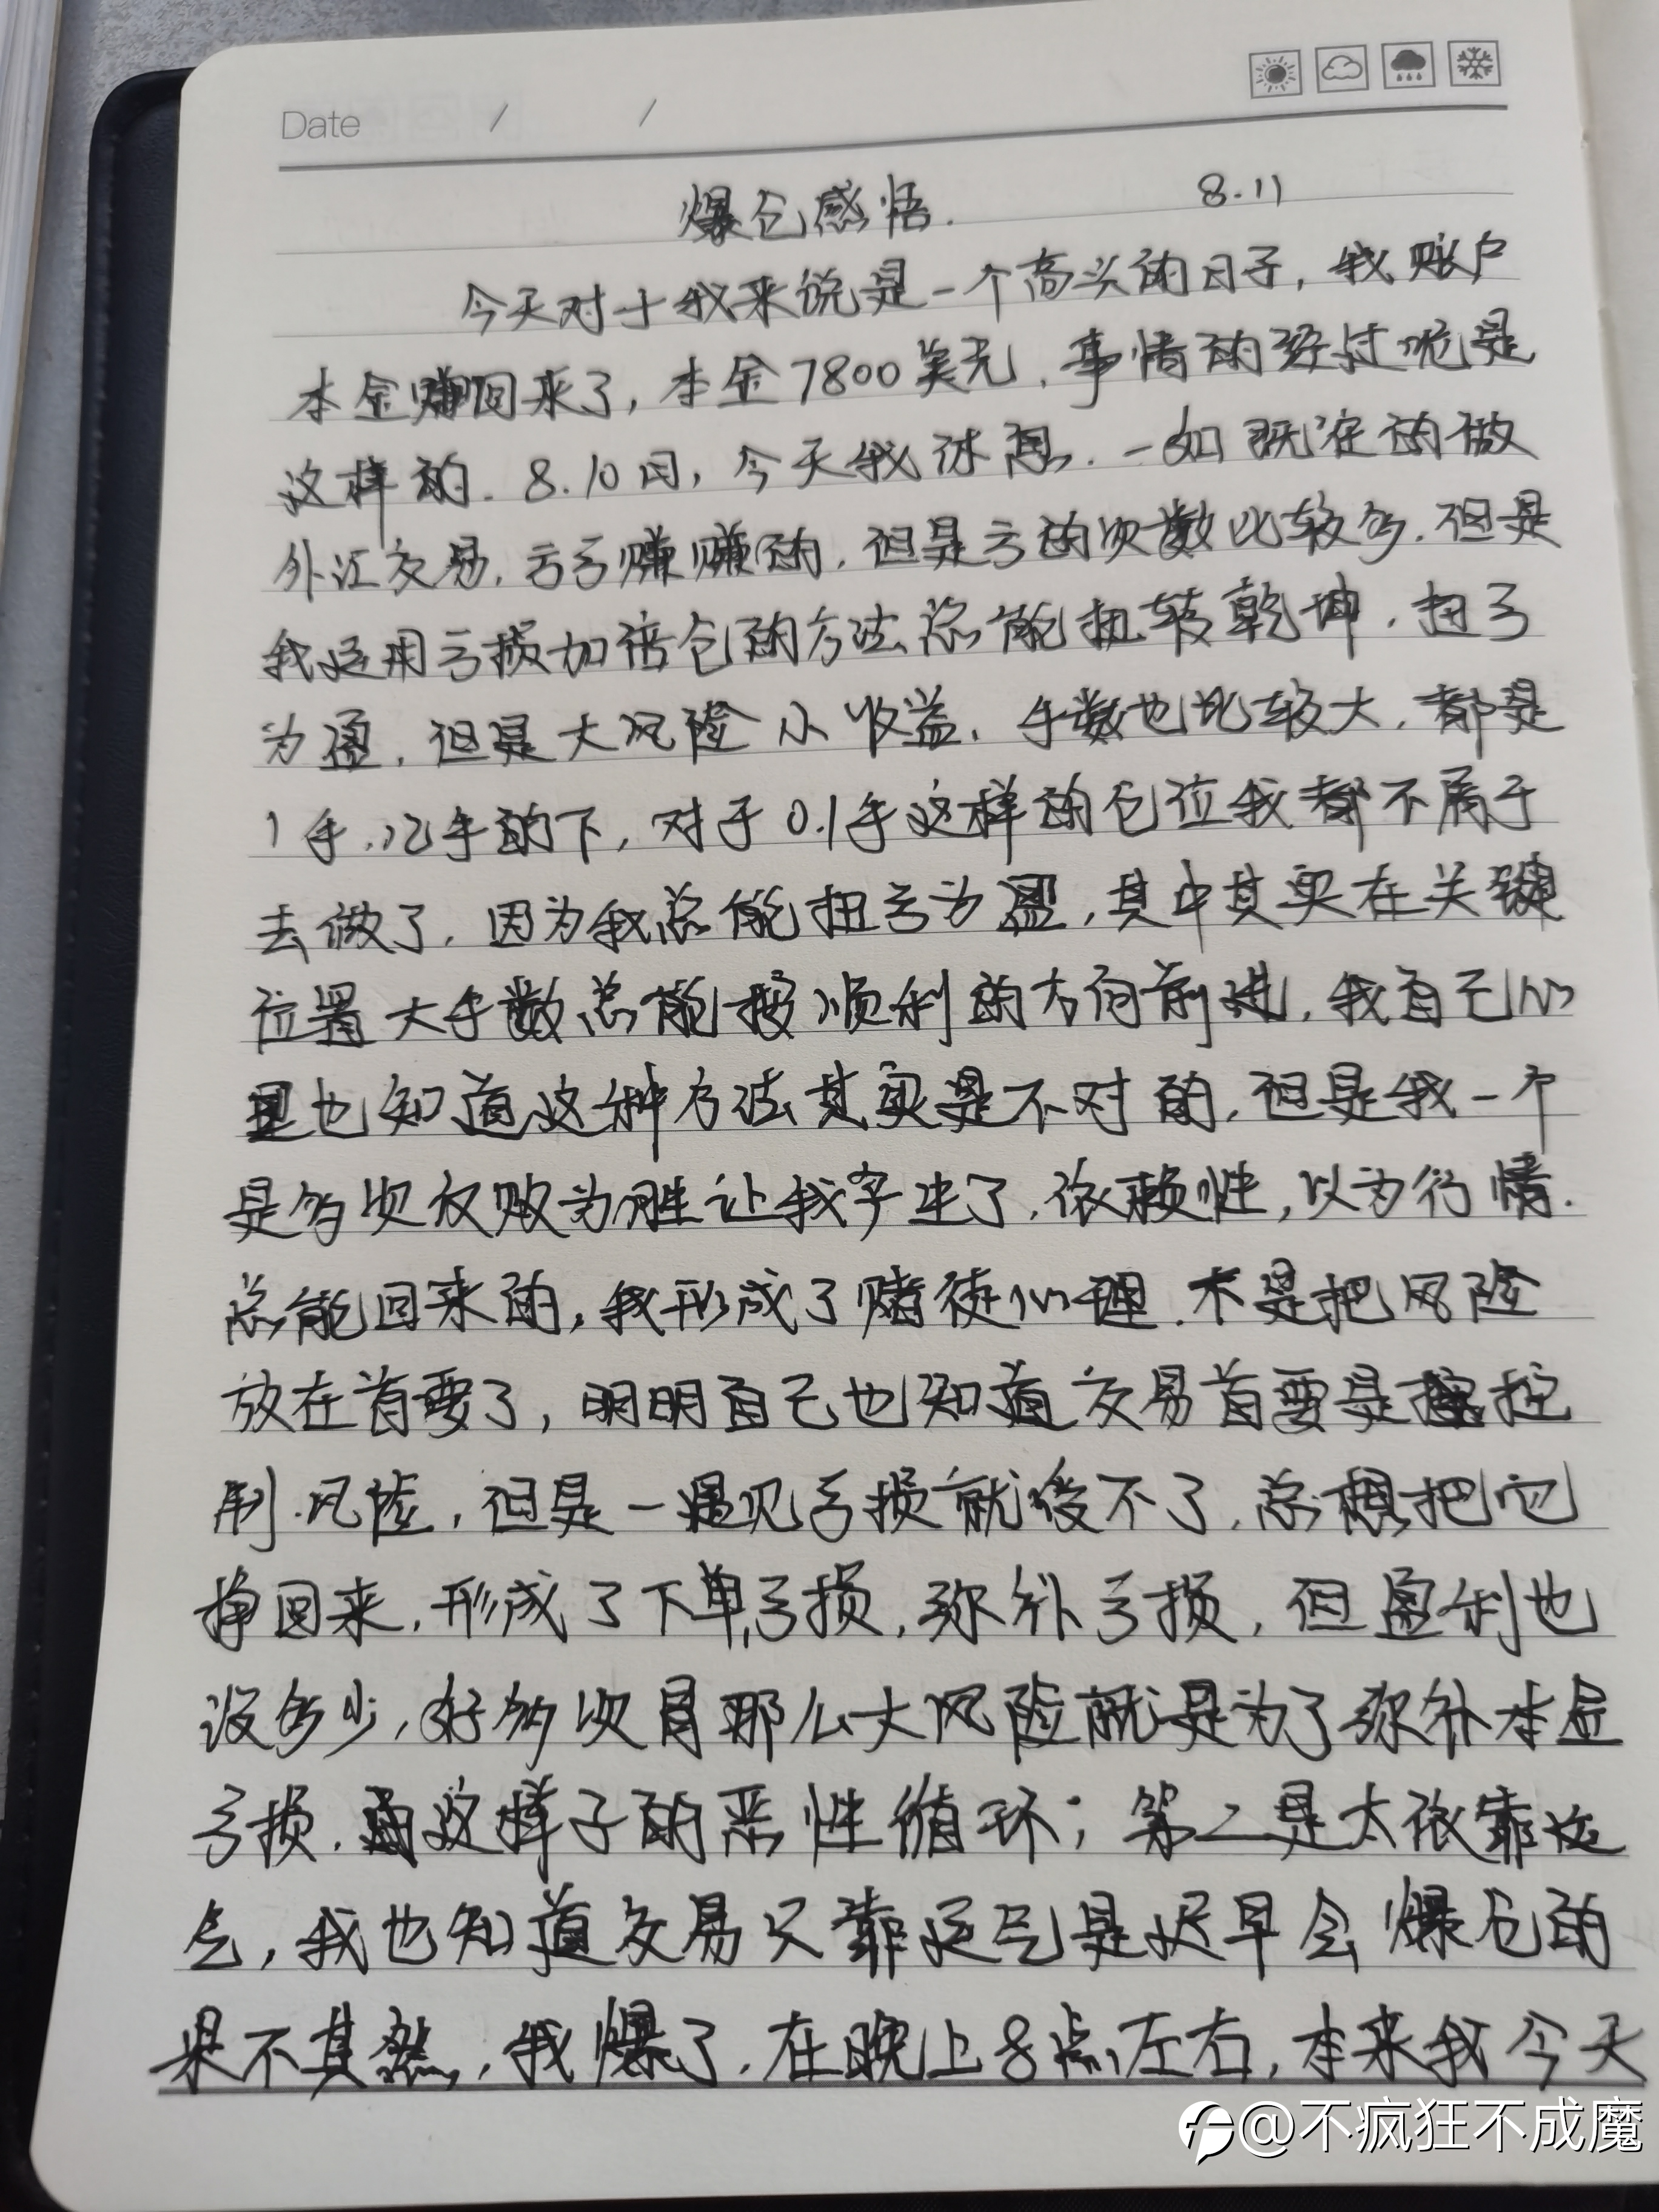 Date / /
爆仓感悟. 8.11
今天对于我来说是一个高头的日子,我账户
本金赚回来了,本金7800美元.事情的经过呢是
这样的.8.10日,今天我休息.一如既往的做
外汇交易,亏亏赚赚的,但是亏的次数比较多.但是
我运用亏损加倍仓的方法总能扭转乾坤.扭亏
为盈,但是大风险小收益.手数也比较大,都是
1手.几手的下,对于0.1手这样的仓位我都不屑于
去做了.因为我总能扭亏为盈,其中其实在关键
位置大手数总能按顺利的方向前进,我自己心
里也知道这种方法其实是不对的,但是我一个
是多次反败为胜让我产生了,依赖性,以为行情.
总能回来的,我形成了赌徒心理.不是把风险
放在首要了,明明自己也知道交易首要是控
制.风险,但是一遇见亏损就受不了,总想把它
挣回来,形成了下单亏损,弥补亏损,但盈利也
没多少,好多次冒那么大风险就是为了弥补本金
亏损.这样子的恶性循环;第二是太依靠运
气,我也知道交易只靠运气是迟早会爆仓的
果不其然,我爆了,在晚上8点左右,本来我今天
@不疯狂不成魔